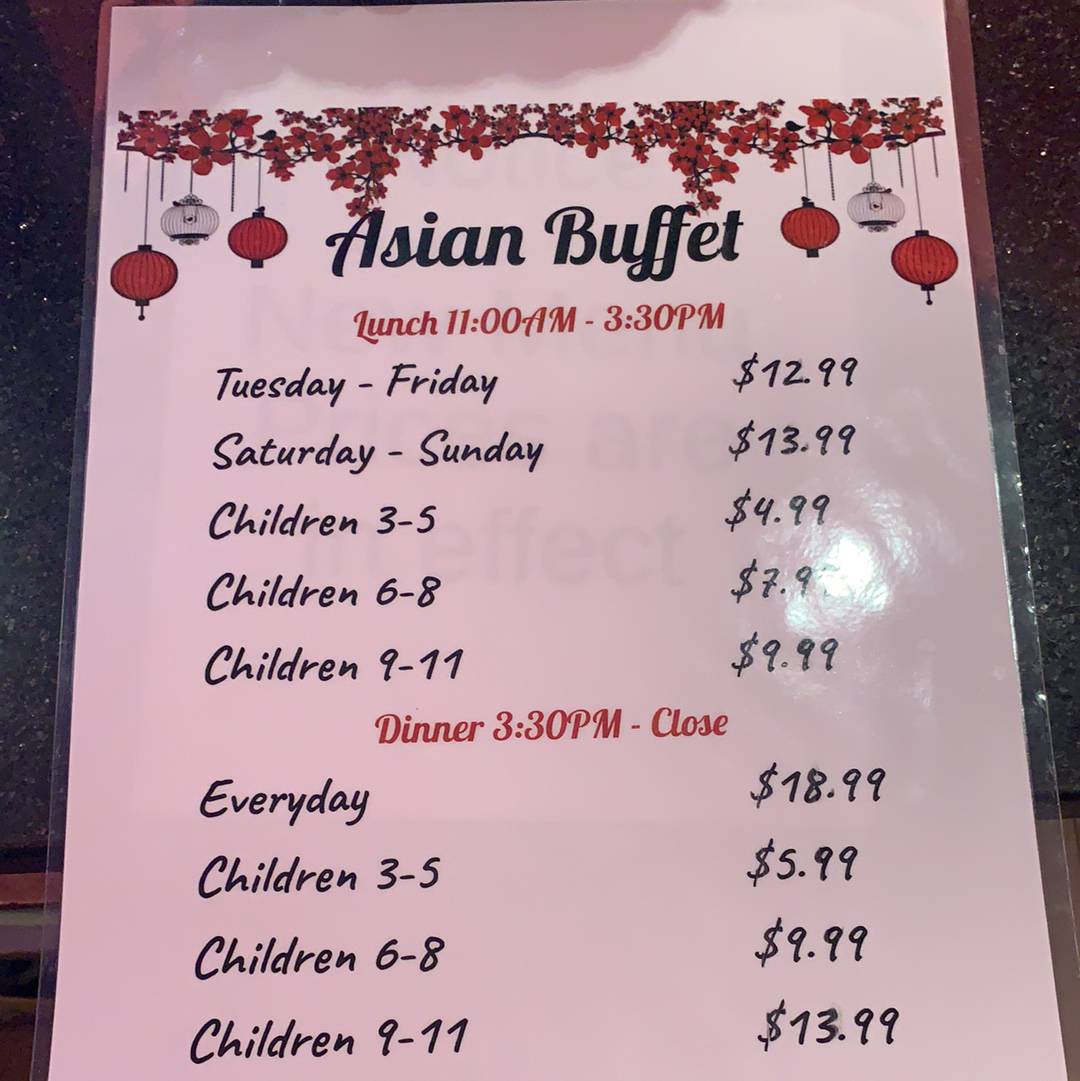 Asian Buffet
Lunch 11:00AM - 3:30PM
Tuesday - Friday $12.99
Saturday - Sunday $13.99
Children 3-5 $4.99
Children 6-8
Children 9-11 $9.99
Dinner 3:30PM - Close
Everyday $18.99
Children 3-5 $5.99
Children 6-8 $9.99
Children 9-11 $13.99